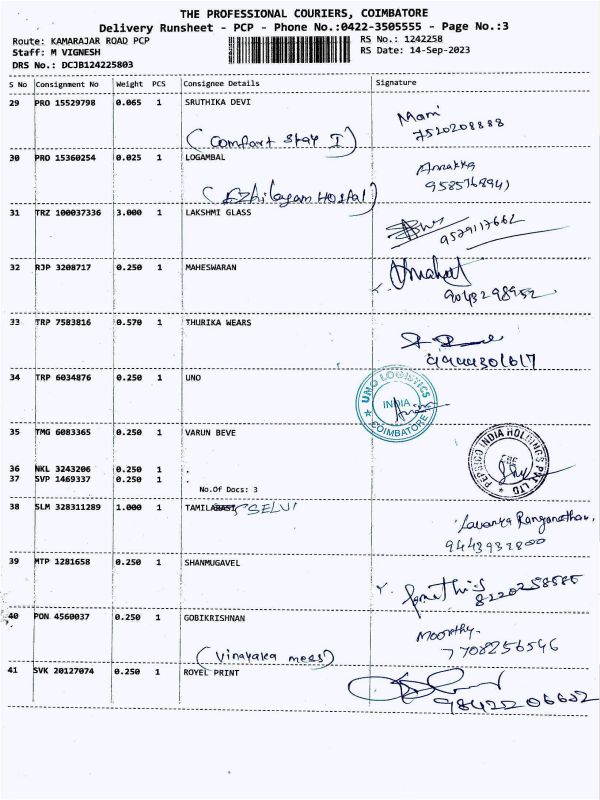 THE PROFESSIONAL COURIERS, COIMBATORE
Delivery Runsheet - PCP - Phone No.:0422-3505555 - Page No.:3
Route: KAMARAJAR ROAD PCP RS No.: 1242258
Staff: M VIGNESH RS Date: 14-Sep-2023
DRS No.: DCJB124225803
S No Consignment No Weight PCS Consignee Details Signature
29 PRO 15529798 0.065 1 SRUTHIKA DEVI
Mani
7520208888
(Comfort stay I)
30 PRO 15360254 0.025 1 LOGAMBAL
Annakka
9585768941
(Ezhilagam Hostal)
31 TRZ 100037336 3.000 1 LAKSHMI GLASS
9529117662
32 RJP 3208717 0.250 1 MAHESWARAN
9043298952
33 TRP 7583816 0.570 1 THURIKA WEARS
9944301617
34 TRP 6034876 0.250 1 UNO
UNO LOGISTICS
INDIA
COIMBATORE
35 TMG 6083365 0.250 1 VARUN BEVE
PEPSICO INDIA HOLDINGS PVT LTD
CBE
36 NKL 3243206 0.250 1 .
37 SVP 1469337 0.250 1 .
No.Of Docs: 3
38 SLM 328311289 1.000 1 TAMILARASI SELVI
Lavanya Ranganathan
9443932800
39 MTP 1281658 0.250 1 SHANMUGAVEL
8220258586
40 PON 4560037 0.250 1 GOBIKRISHNAN
Moorthy.
7708256546
(Vinayaka mess)
41 SVK 20127074 0.250 1 ROYEL PRINT
9842206602